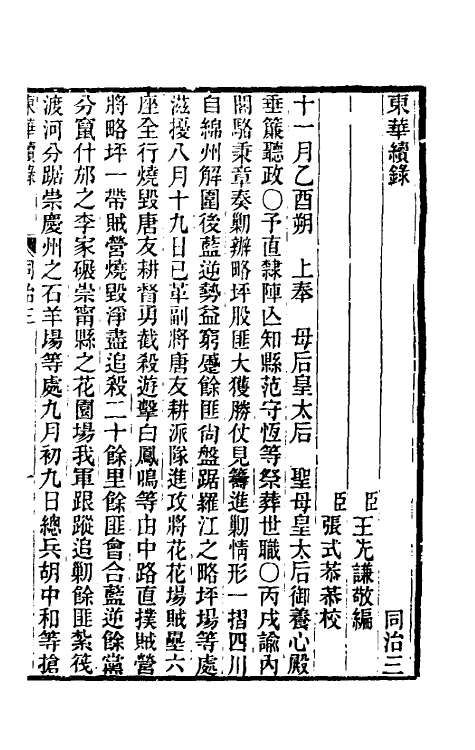 東華續錄 同治三
臣王先謙敬編
臣張式恭恭校
十一月乙酉朔 上奉 母后皇太后 聖母皇太后御養心殿
垂簾聽政〇予直隸陣亾知縣范守恆等祭葬世職〇丙戌諭內
閣駱秉章奏勦辦略坪股匪大獲勝仗見籌進勦情形一摺四川
自綿州解圍後藍逆勢益窮蹙餘匪尙盤踞羅江之略坪場等處
滋擾八月十九日已革副將唐友耕派隊進攻將花花場賊壘六
座全行燒毀唐友耕督勇截殺遊擊白鳳鳴等由中路直撲賊營
將略坪一帶賊營燒毀淨盡追殺二十餘里餘匪會合藍逆餘黨
分竄什邡之李家碾崇甯縣之花園場我軍跟蹤追勦餘匪紮筏
渡河分踞崇慶州之石羊場等處九月初九日總兵胡中和等搶
東華續錄 同治三 一